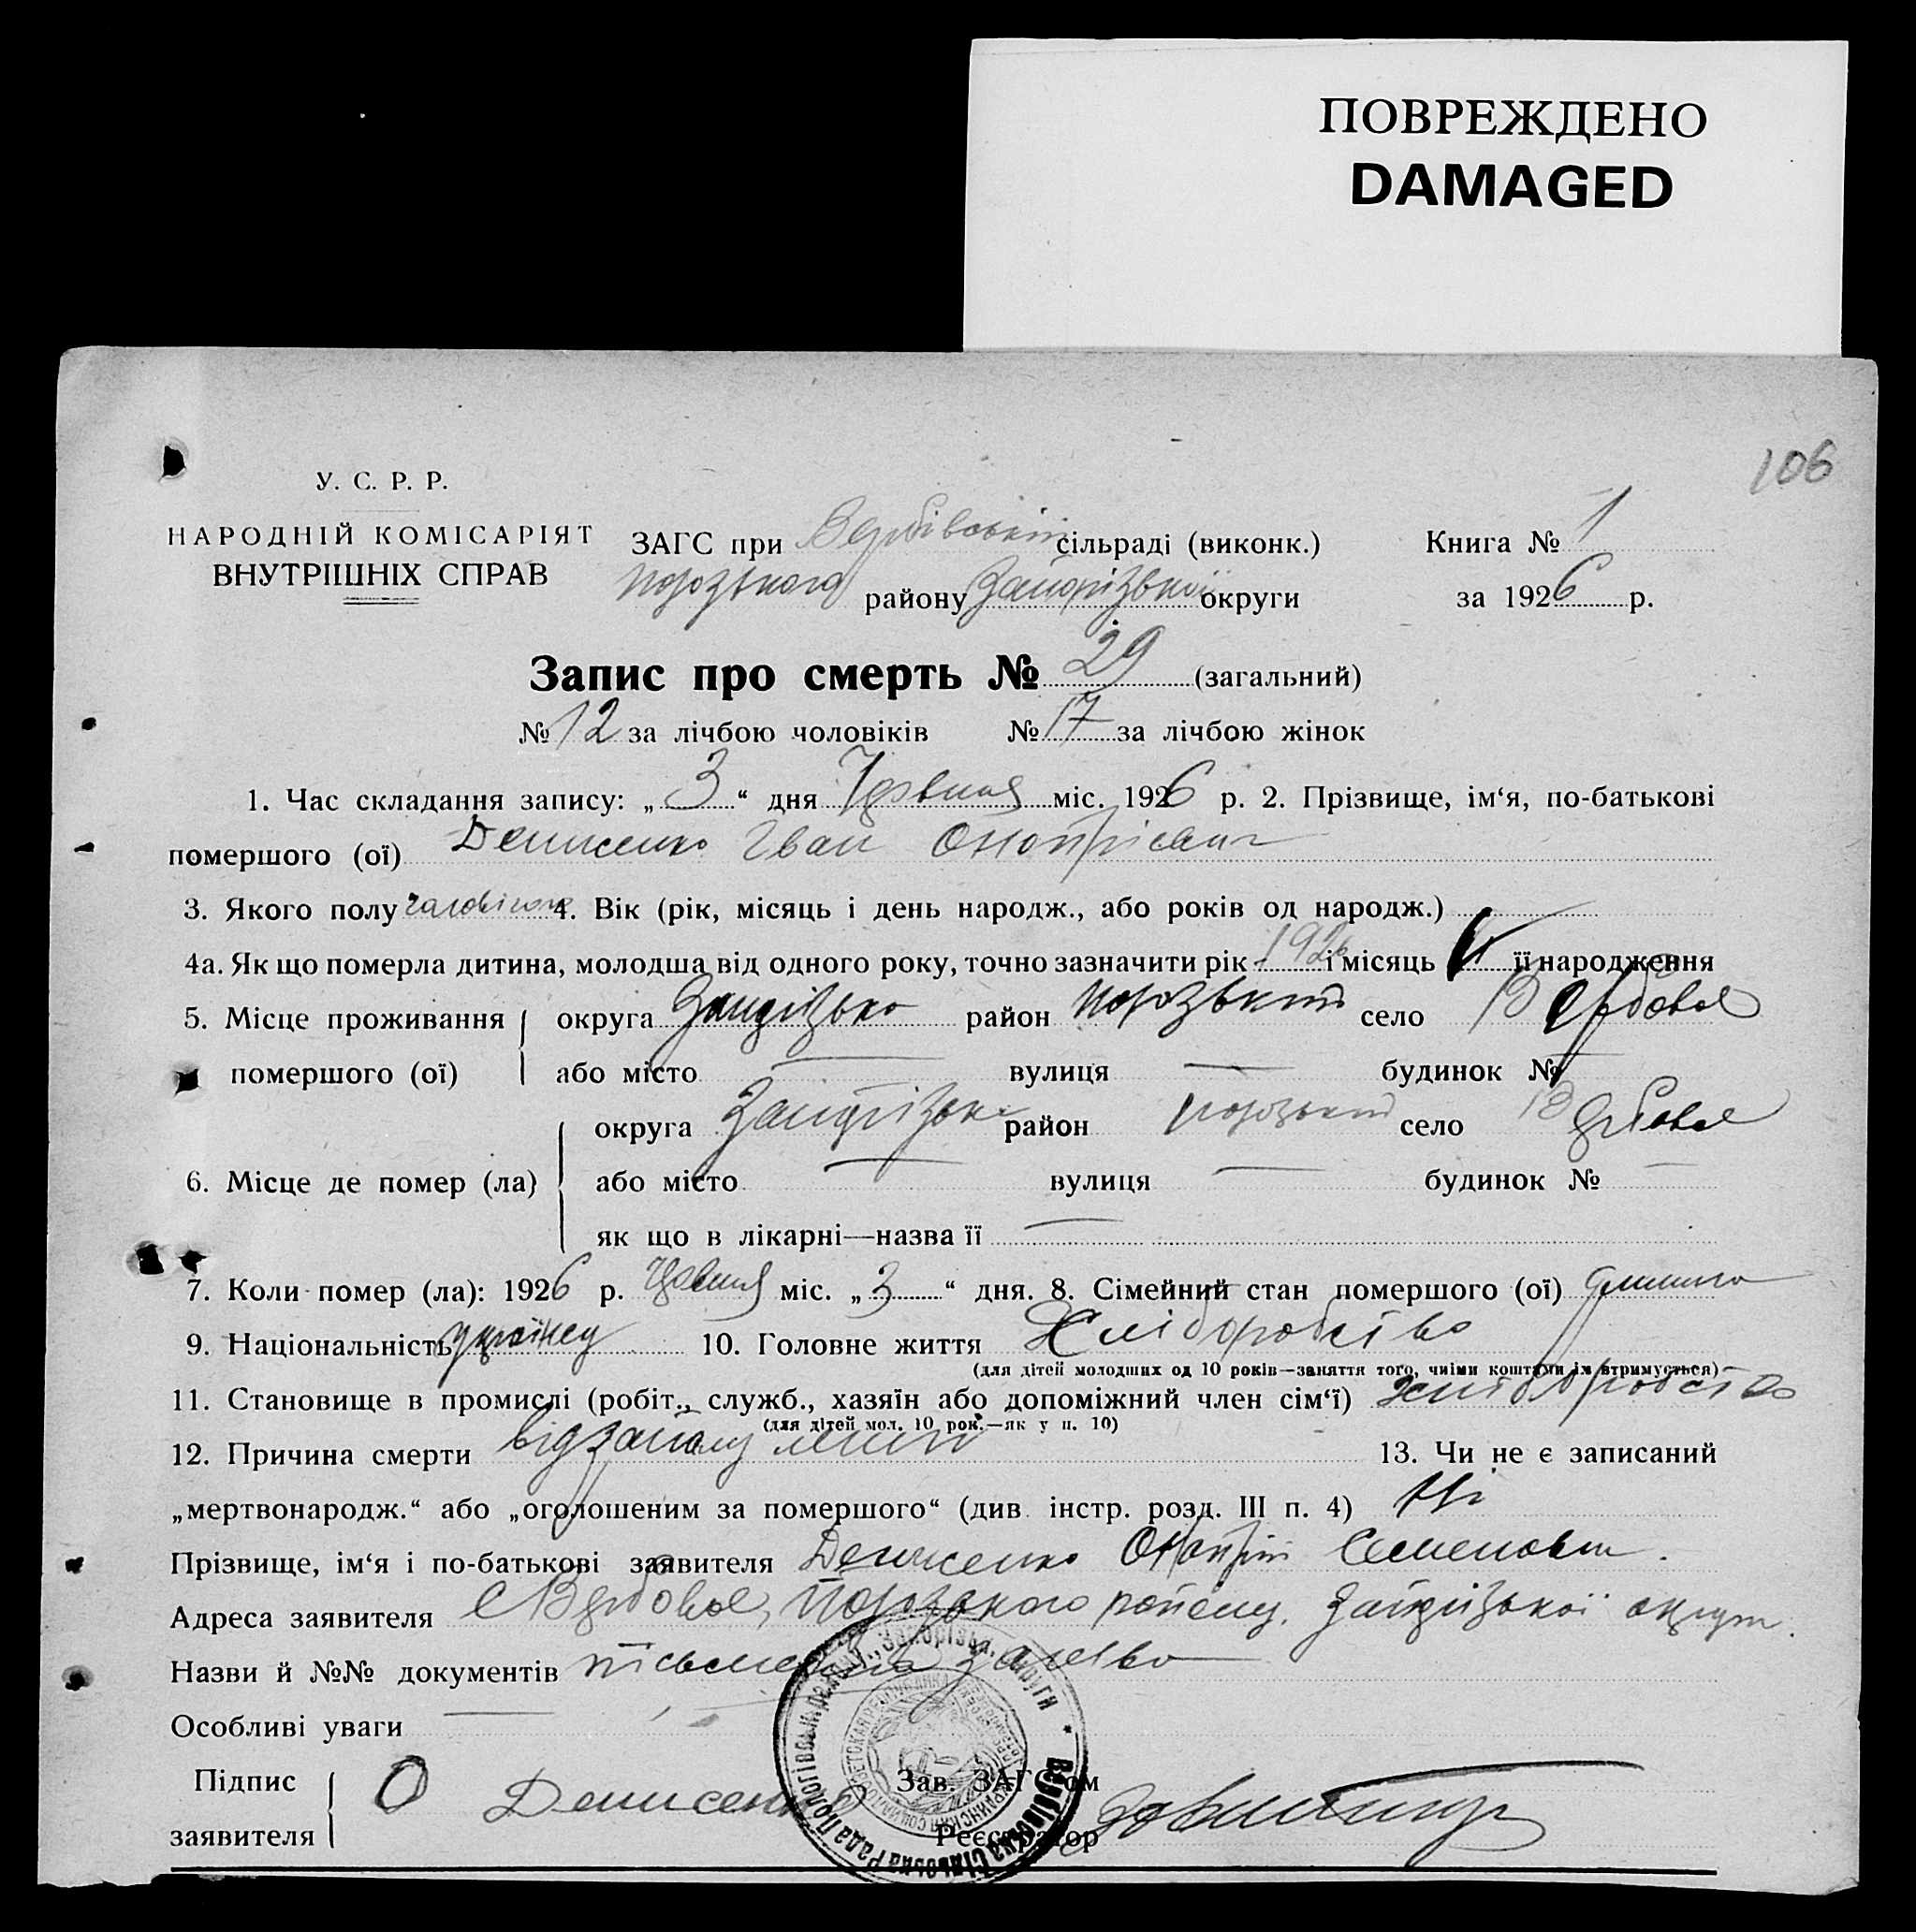 ПОВРЕЖДЕНО
DAMAGED
106
У. С. Р. Р.
НАРОДНІЙ КОМІСАРІЯТ
ВНУТРІШНІХ СПРАВ
ЗАГС при Вербівській сільраді (виконк.) Книга № 1
району Запорізької округи за 1926 р.
Запис про смерть № 29 (загальний)
№ 12 за лічбою чоловіків № 17 за лічбою жінок
1. Час складання запису: „ 3 “ дня Червня міс. 1926 р. 2. Прізвище, ім‘я, по-батькові
помершого (ої) Денисенко Іван
3. Якого полу 4. Вік (рік, місяць і день народж., або років од народж.)
4а. Як що померла дитина, молодша від одного року, точно зазначити рік 1926 і місяць її народження
5. Місце проживання округа район село Вербове
помершого (ої) або місто — вулиця — будинок №
округа район село Вербове
6. Місце де помер (ла) або місто — вулиця — будинок № —
як що в лікарні—назва її —
7. Коли помер (ла): 1926 р. Червня міс. „ 3 “ дня. 8. Сімейний стан помершого (ої)
9. Національність 10. Головне життя Хліборобство
(для дітей молодших од 10 років—заняття того, чиїми коштами їх втримується)
11. Становище в промислі (робіт., служб., хазяїн або допоміжний член сім‘ї)
(для дітей мол. 10 рок.—як у п. 10)
12. Причина смерти від запалу 13. Чи не є записаний
„мертвонародж.“ або „оголошеним за помершого“ (див. інстр. розд. III п. 4) Ні
Прізвище, ім‘я і по-батькові заявителя Денисенко Онопрій Семенович
Адреса заявителя с Вербове, району, Запорізької округи.
Назви й №№ документів
Особливі уваги —
Підпис О Денисенко Зав. ЗАГС‘ом
заявителя Реєстратор
Вербівська Сільська Рада Пологівськ. району, Запорізьк. округи